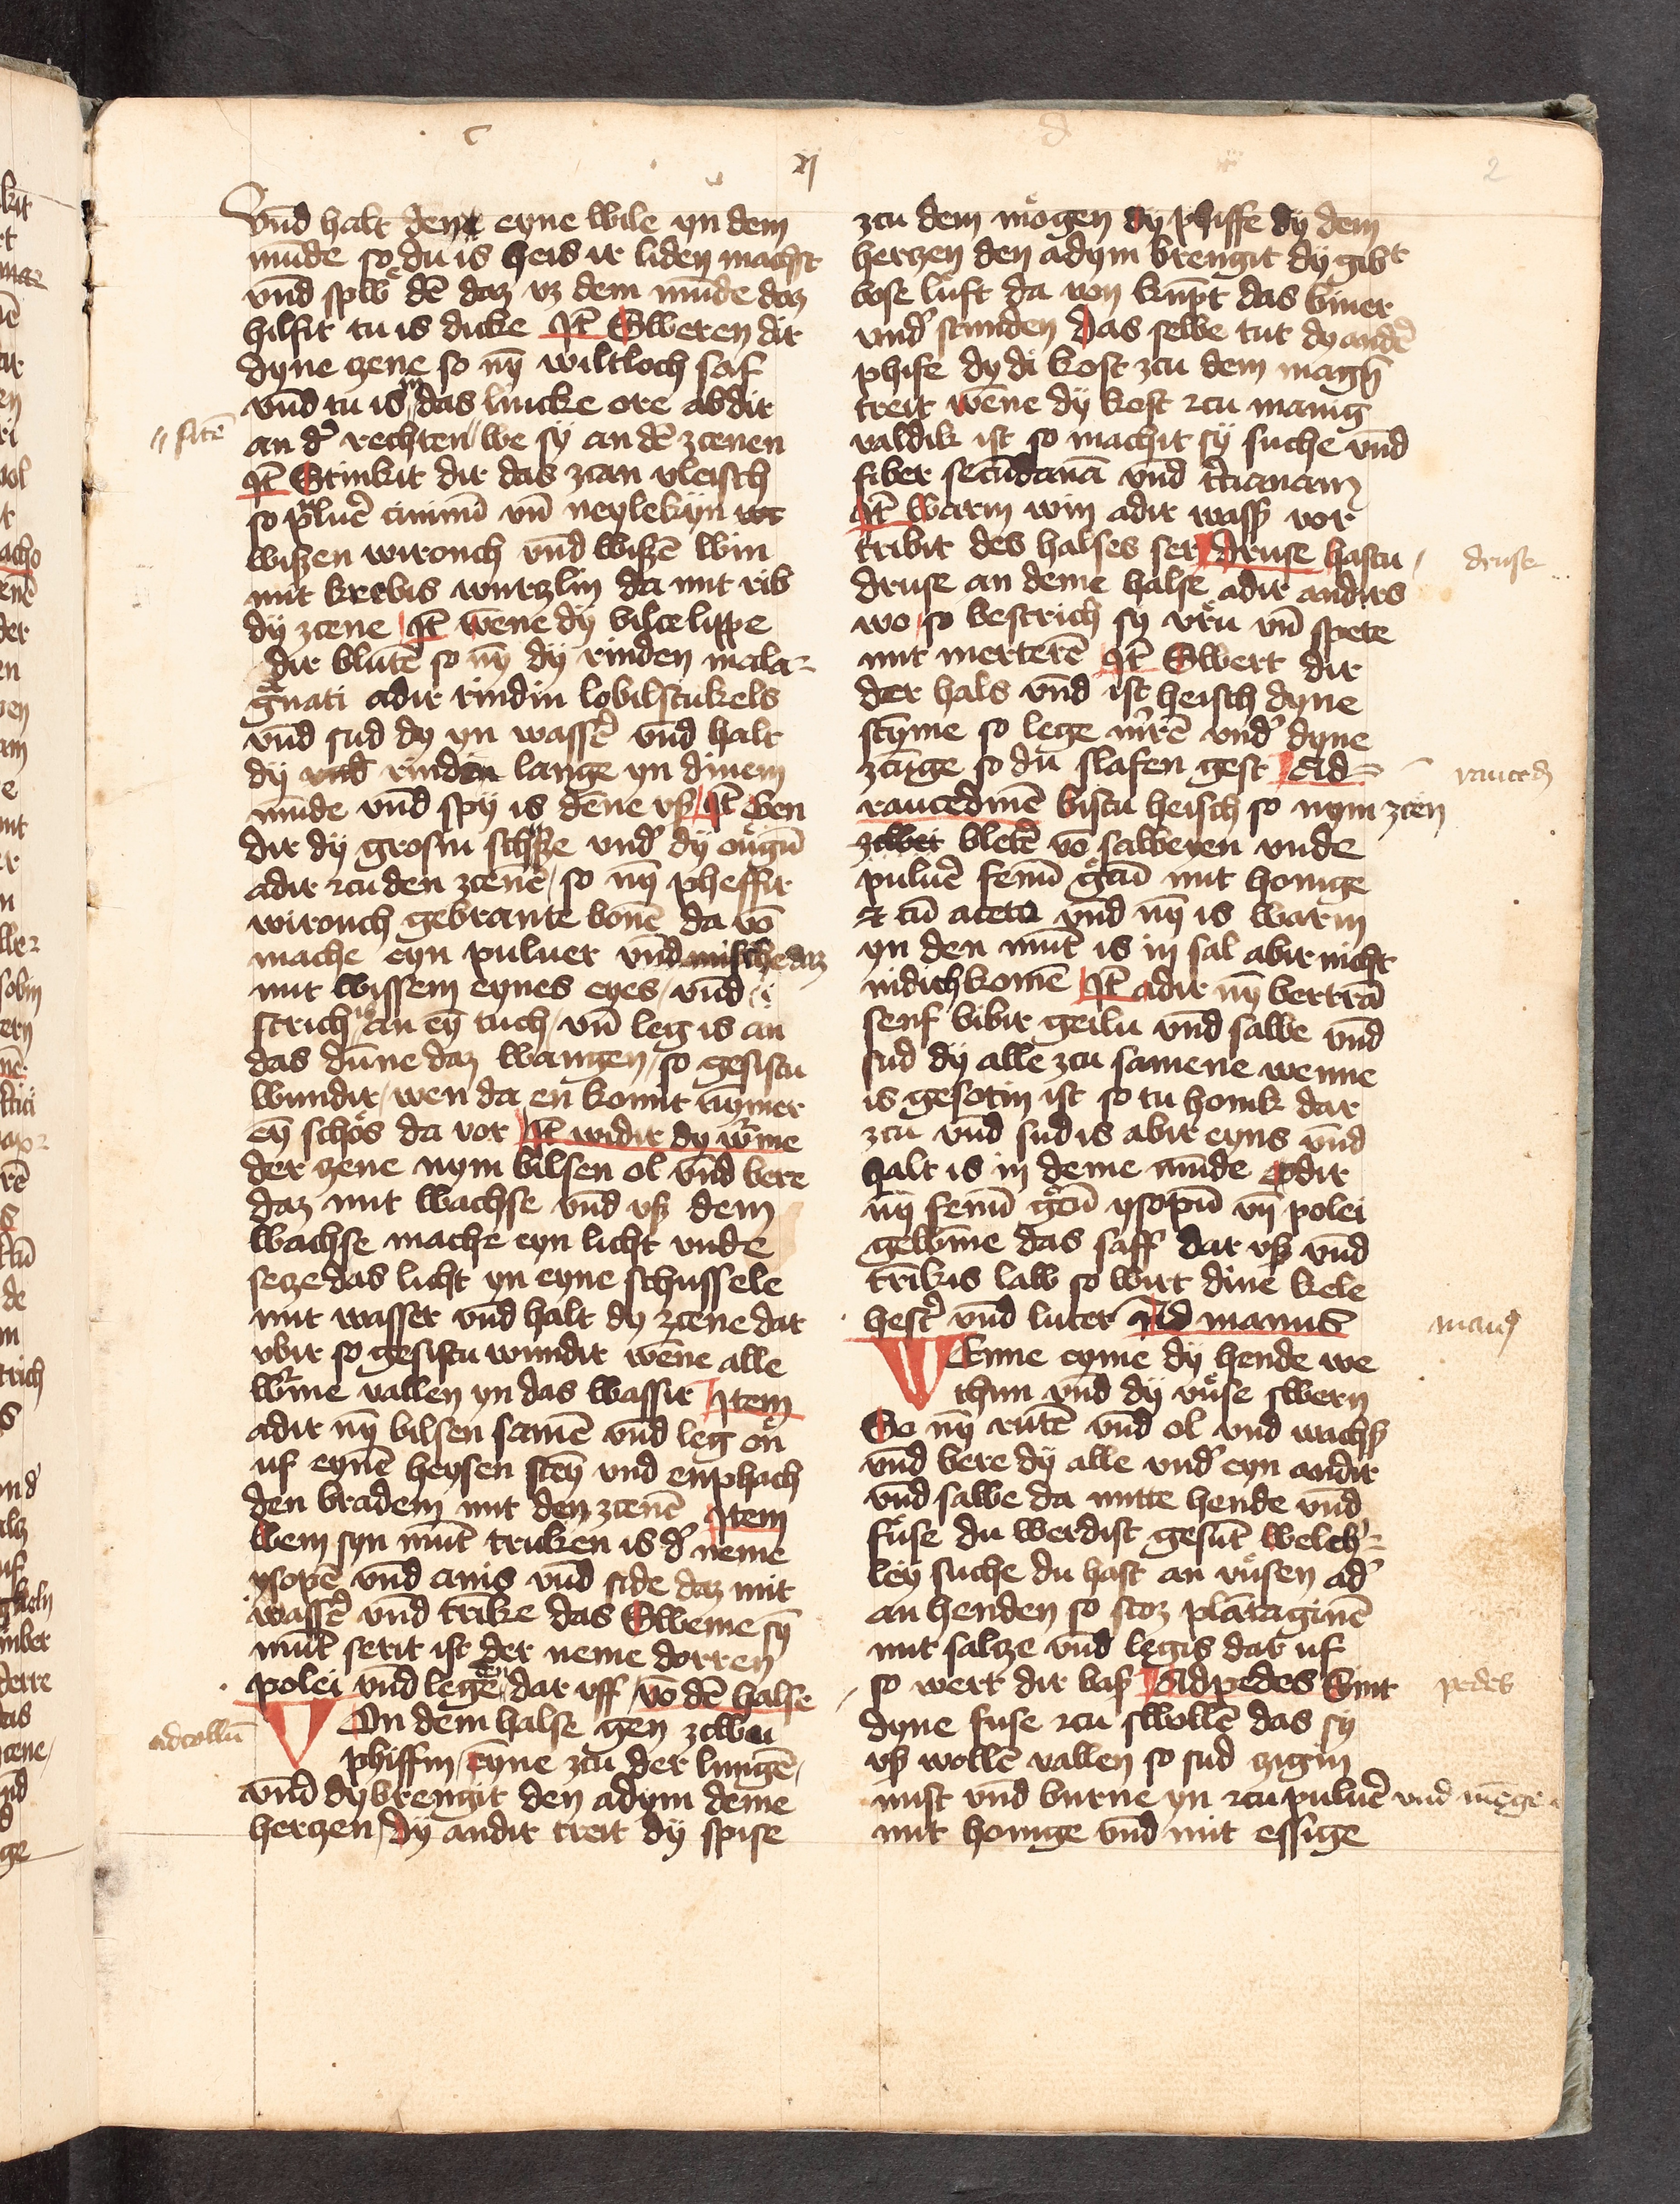 c
d
ij
2
vnd halt den eyne wile yn dem
mūde so du is heis ir liden machst
vnd spiw dē daz vz dem mūde daz
hilfit tu is dicke Itē Sweren dir
dyne zene so nȳ wiltloch saf
vnd tu is in das lincke ore abdir
an d' rechten we sy an dē zcenen
sitē
Itē Stinkit dir das zcan vleisch
so pluē ciminū vn̄ neylekijn
wiszen wirouch vnd wiszē win
mit krebis wurczlin da mit rib
dy zcene Itē wēne dy bilce lippe
dir blutē so nȳ dy rinden mala=
gnati adir rindin lobilstukels
vnd sud dy yn wassē vnd halt
dy vnd rinden lange yn dinem
mūde vnd spy is dēne vsz Itē Ben
dir dy grosin vnd' dy ougū
adir zcu den zcenē so nȳ pheffir
wirouch gebrante bonē da vō
mache eyn puluer vnd mische daz
mit wissem eynes eyes vnd
strich is an eȳ tuch vn̄ leg is an
das dūne daz wangen so gesistu
wundir wen da en komit nȳmer
eȳ schōs da vor Itē widir dy wrme
der zene nym bilsen ol vnd bere
daz mit wachse vnd vsz dem
wachse mache eyn licht vnde
secze das licht yn eyne schussele
mit wasser vnd halt dy zcene dar
vbir so gesistu wundir wēne alle
wrme vallen yn das wassir Item
adir nȳ bilsen samē vnd leg on
uf eynē heysen steȳ vnd enphach
den bradem mit den zcenē Item
wem syn mūt truken is d' neme
ysopē vnd anis vnd side daz mit
wassē vnd trīke das Sweme sȳ
mūt serit ist der neme dorren
polei vnd lege en dar vff vō dē halse
adcollū
Von dem halse gen zcwu
phiffin eyne zcu der lungē
vnd dy brengit den adym deme
herczen dy andir treit dy spise
zcu dem mogen dy phiffe dy dem
herczen den adym brengit dy gibt
bose luft da von kūpt das
vnd' stunden das selbe tut dy andē
phife dy di kost zcu dem magȳ
treit wēne dy kost zcu manig
valdik ist so machit sy suche vnd
fiber secūdanā vnd tcianam
Itē warm win adir wassz vor
tribit des halses ser Druse hastu
druse
druse an deme halse adir andirs
wo so bestrich sy vru vn̄ spete
mit merterē Itē Swert dir
der hals vnd ist heisch dyne
styme so lege mirrē vnd' dyne
zcūge so du slafen gest Ad
rauced
raucedinē bistu heisch so nym zcen
zcwei bletē vō salbeyen vnde
puluē fenū gcū mit honige
et cū aceto vnd nȳ is warm
yn den mūt is in sal abir nicht
nidirh komē Itē adir nȳ bertrā
senf bibir geiln vnd salbe vnd
sud dy alle zcu samene wenne
is gesotin ist so tu honik dar
zcu vnd sud is abir eyns vnd
halt is in deme mūde Odir
nȳ fenū gcū ysopū vn̄ polei
gewīne das saff dar vsz vnd
trīkis law so wirt dine kele
hest' vnd luter Ad manus
man9
Wenne eyme dy hende we
thun vnd dy vuse swern
So nȳ rutē vnd ol vnd wachsz
vnd bere dy alle vnd' eyn andir
vnd salbe da mitte hende vnd
fuse du werdist gesūt welch'=
ley suche du hast an vusen ad'
an henden so stoz plātaginē
mit salcze vnd legis dar uf
so wert dir basz Ad pedes Sint
pedes
dyne fuse zcu swollē das sy
vsz wollē vallen so sud zigin
mist vnd burne yn zcu puluē vnd mēge
mit honige vnd mit essige